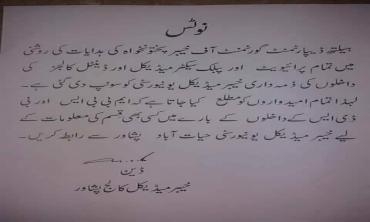 نوٹس
ہیلتھ ڈیپارٹمنٹ گورنمنٹ آف خیبر پختونخواہ کی ہدایات کی روشنی
میں تمام پرائیویٹ اور پبلک سیکٹر میڈیکل اور ڈینٹل کالجز کی
داخلوں کی ذمہ داری خیبر میڈیکل یونیورسٹی کو سونپ دی گئی ہے۔
لہذا تمام امیدواروں کو مطلع کیا جاتا ہے کہ ایم بی بی ایس اور بی
ڈی ایس کے داخلوں کے بارے میں کسی بھی قسم کی معلومات کے
لیے خیبر میڈیکل یونیورسٹی حیات آباد پشاور سے رابطہ کریں۔
ڈین
خیبر میڈیکل کالج پشاور